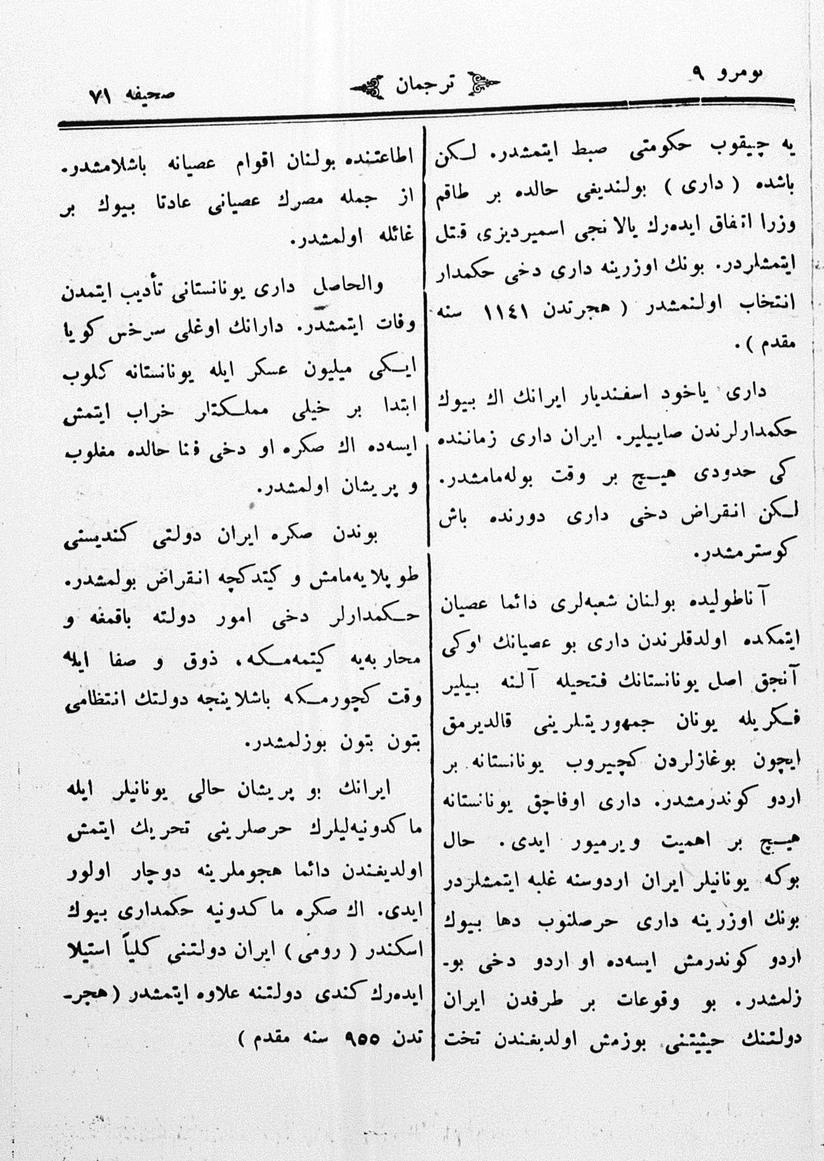 نومرو ٩
ترجمان
صحیفه ٧١
یه چیقوب حکومتی ضبط ایتمشدر. لـکن
باشده (داری) بولندیغی حالده بر طاقم
وزرا اتفاق ایده‌رك یالانجی اسمیردیزی قتل
ایتمشلردر. بونك اوزرینه داری دخی حکمدار
انتخاب اولنمشدر (هجرتدن ١١٤١ سنه
مقدم).
داری یاخود اسفندیار ایرانك اك بیوك
حکمدارلرندن صاییلیر. ایران داری زماننده
کی حدودی هیـچ بر وقت بوله‌مامشدر.
لـکن انقراض دخی داری دورنده باش
کوسترمشدر.
آناطولیده بولنان شعبه‌لری دائما عصیان
ایتمکده اولدقلرندن داری بو عصیانك اوکی
آنجق اصل یونانستانك فتحیله آلنه بیلیر
فـکریله یونان جمهوریتلرینی قالدیرمق
ایچون بوغازلردن کچیروب یونانستانه بر
اردو کوندرمشدر. داری اوفاجق یونانستانه
هیـچ بر اهمیت ویرمیور ایدی. حال
بوکه یونانیلر ایران اردوسنه غلبه ایتمشلردر
بونك اوزرینه داری حرصلنوب دها بیوك
اردو کوندرمش ایسه‌ده او اردو دخی بوـ
زلمشدر. بو وقوعات بر طرفدن ایران
دولتنك حیثیتنی بوزمش اولدیغندن تخت
اطاعتنده بولنان اقوام عصیانه باشلامشدر.
از جمله مصرك عصیانی عادتا بیوك بر
غائله اولمشدر.
والحاصل داری یونانستانی تأدیب ایتمدن
وفات ایتمشدر. دارانك اوغلی سرخس کویا
ایـکی میلیون عسکر ایله یونانستانه کلوب
ابتدا بر خیلی مملـکتلر خراب ایتمش
ایسه‌ده اك صکره او دخی فنا حالده مغلوب
و پریشان اولمشدر.
بوندن صکره ایران دولتی کندیسنی
طوپلایه‌مامش و کیتدکچه انقراض بولمشدر.
حـکمدارلر دخی امور دولته باقمغه و
محاربه‌یه کیتمه‌مـکه، ذوق و صفا ایله
وقت کچورمـکه باشلاینجه دولتك انتظامی
بتون بتون بوزلمشدر.
ایرانك بو پریشان حالی یونانیلر ایله
ماکدونیه‌لیلرك حرصلرینی تحریك ایتمش
اولدیغندن دائما هجوملرینه دوچار اولور
ایدی. اك صکره ماکدونیه حکمداری بیوك
اسکندر (رومی) ایران دولتنی کلیاً استیلا
ایده‌رك کندی دولتنه علاوه ایتمشدر (هجرـ
تدن ٩٥٥ سنه مقدم)